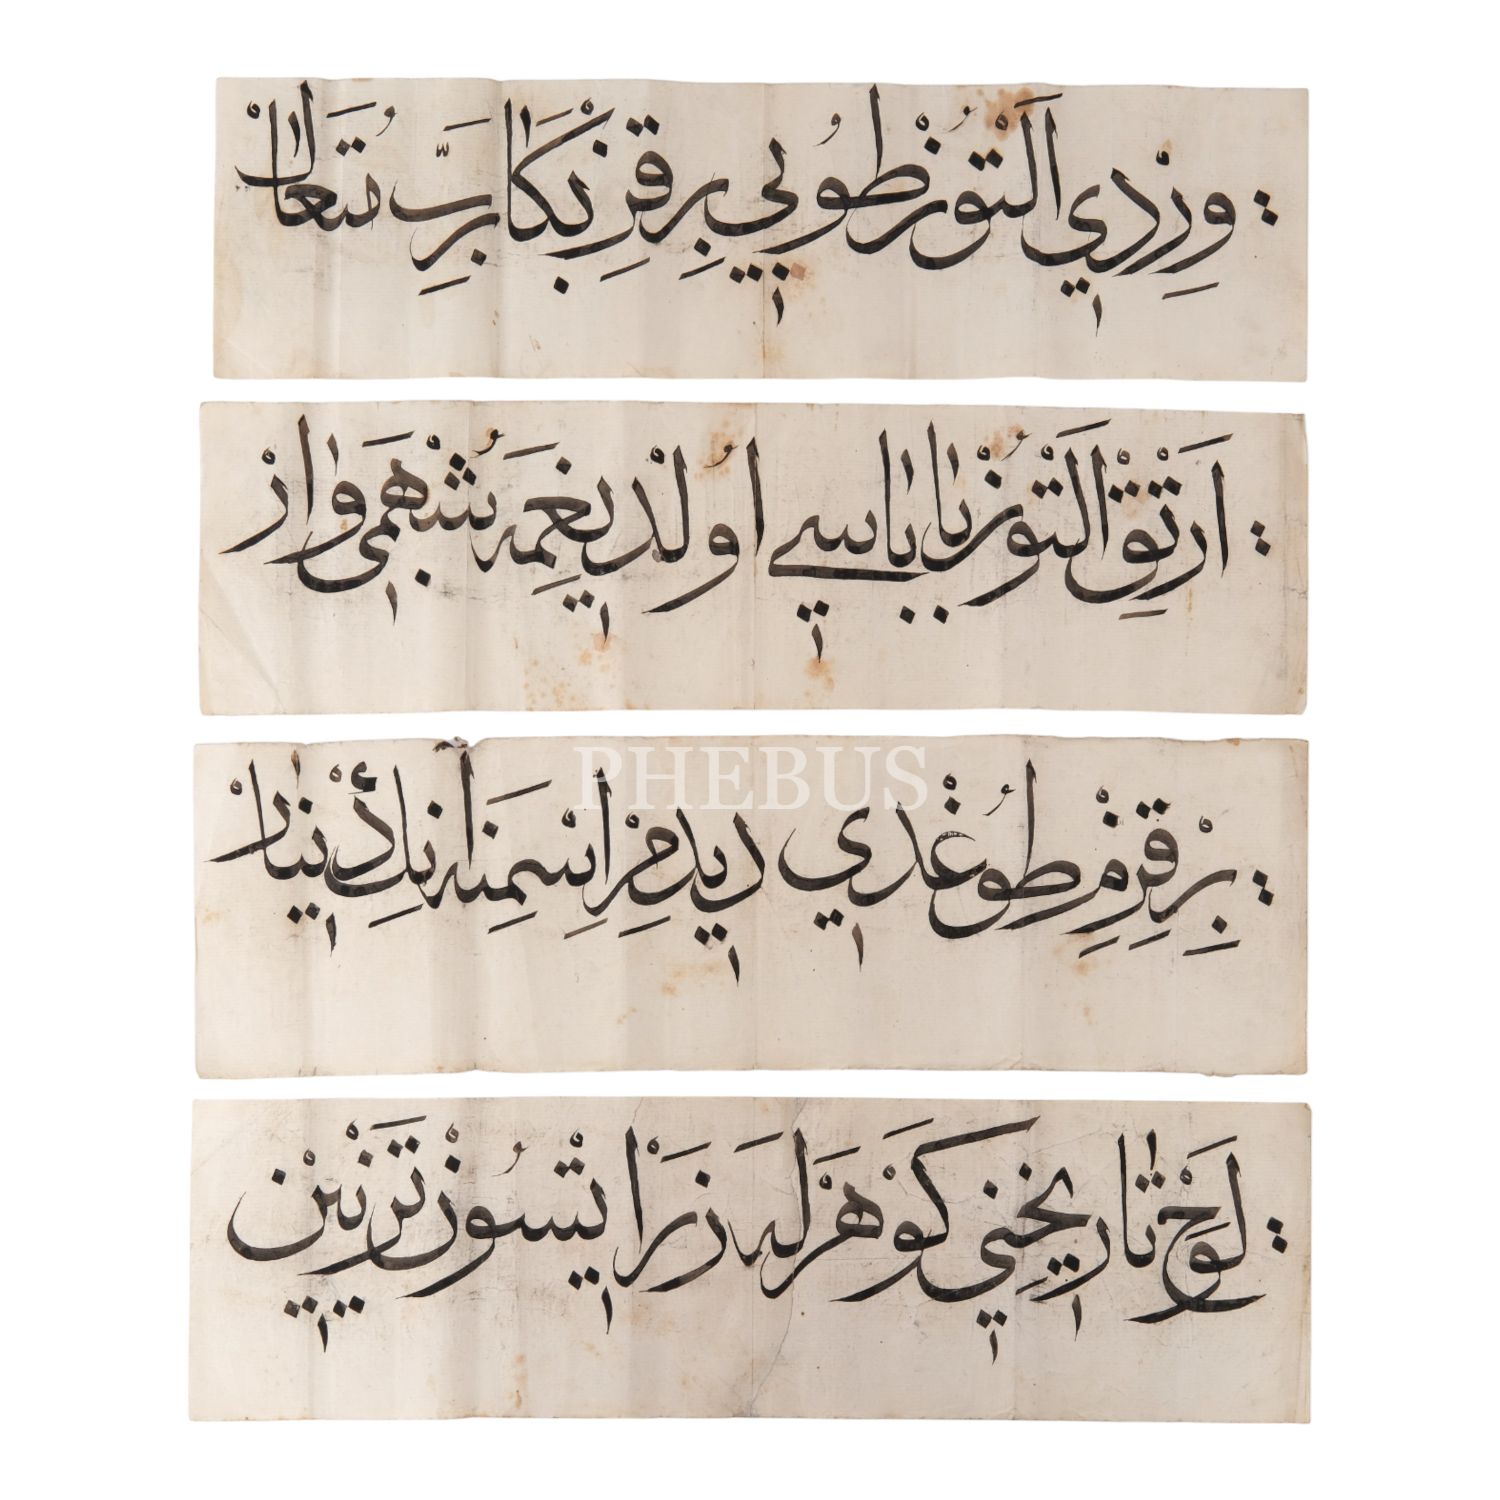 وِرْدِي اَلْتُونْ طُوپِي بِرْ قِزْ بَكَا رَبِّ مُتَعَالْ
اَرْتِقْ اَلْتُونْ بَابَاسِي اُولْدِيغِمَه شُبْهَمِی وَارْ
PHEBUS
بِرْ قِزِمْ طُوغْدِي دِيدِمْ اِسْمِنَه اَنِكْ دِينَارْ
لَوْحِ تَارِيخِنِي كَوْهَرْلَه زَرْ اِيتْسُونْ تَزْيِينْ